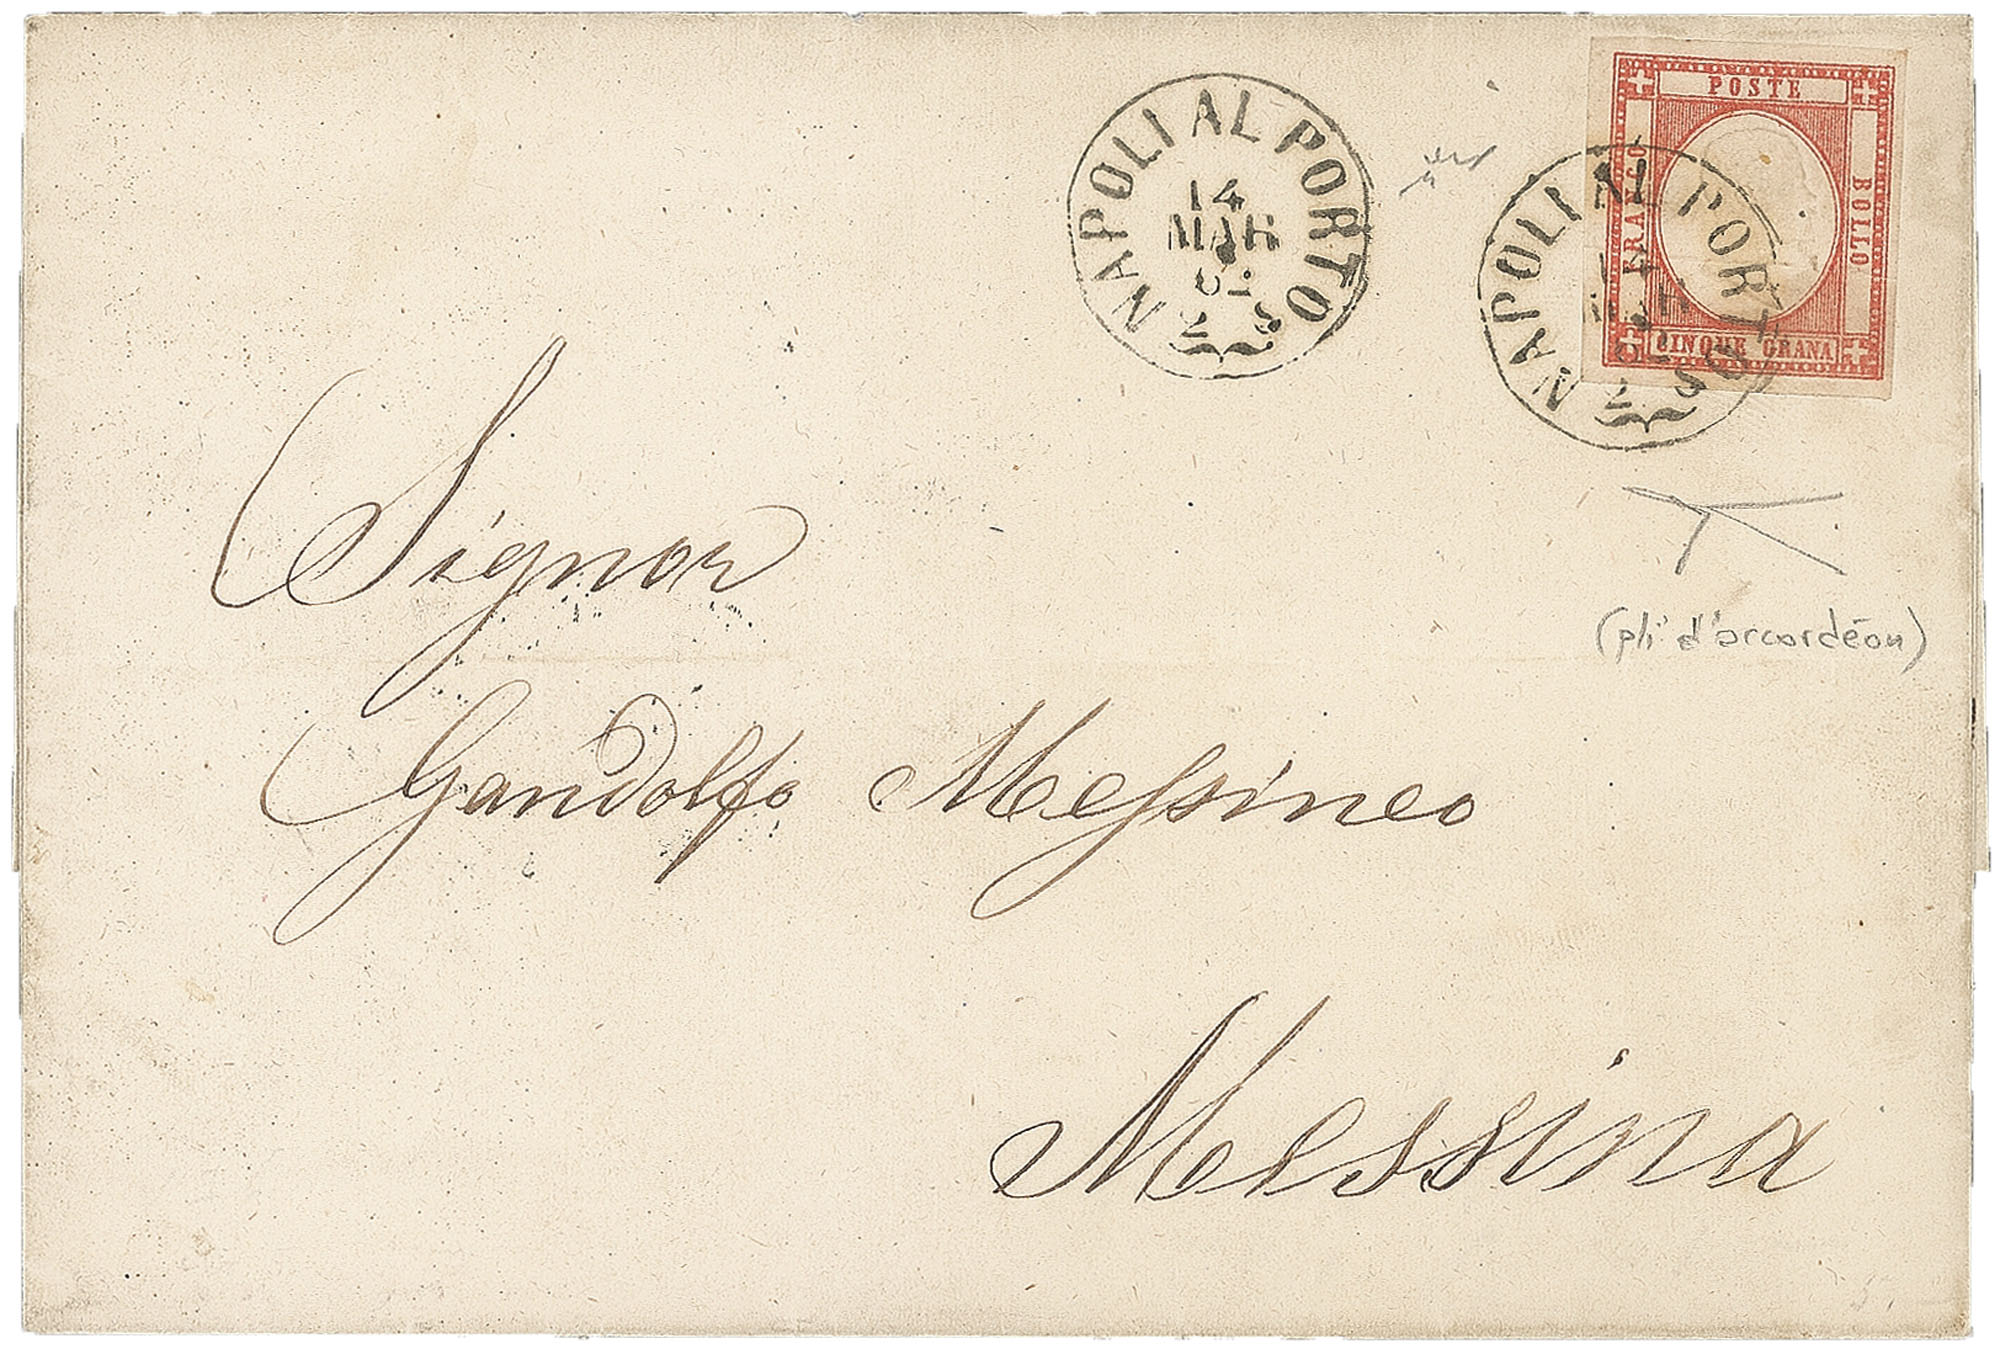 NAPOLI AL PORTO
14
MAR
62
2 S
POSTE
FRANCO
BOLLO
CINQUE GRANA
NAPOLI AL PORTO
14
MAR
2 S
(pli d'arcordéon)
Signor
Gandolfo Messineo
Messina